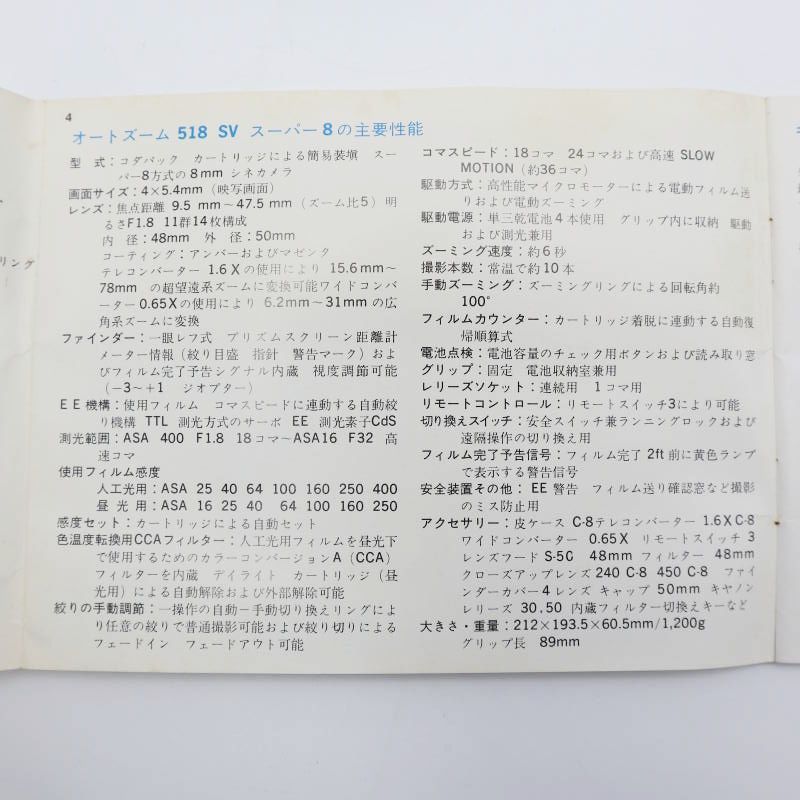 4
オートズーム 518 SV スーパー8の主要性能
型 式：コダパック カートリッジによる簡易装塡 スー
パー8方式の8mm シネカメラ
画面サイズ：4×5.4mm（映写画面）
レンズ：焦点距離 9.5 mm〜47.5 mm（ズーム比5）明
るさF1.8 11群14枚構成
内 径：48mm 外 径：50mm
コーティング：アンバーおよびマゼンタ
テレコンバーター 1.6Xの使用により 15.6mm〜
78mm の超望遠系ズームに変換可能ワイドコンバ
ーター0.65Xの使用により 6.2mm〜31mmの広
角系ズームに変換
ファインダー：一眼レフ式 プリズムスクリーン距離計
メーター情報（絞り目盛 指針 警告マーク）およ
びフィルム完了予告シグナル内蔵 視度調節可能
（−3〜+1 ジオプター）
EE機構：使用フィルム コマスピードに連動する自動絞
り機構 TTL 測光方式のサーボ EE 測光素子CdS
測光範囲：ASA 400 F1.8 18コマ〜ASA16 F32 高
速コマ
使用フィルム感度
人工光用：ASA 25 40 64 100 160 250 400
昼 光 用：ASA 16 25 40 64 100 160 250
感度セット：カートリッジによる自動セット
色温度転換用CCAフィルター：人工光用フィルムを昼光下
で使用するためのカラーコンバージョンA（CCA）
フィルターを内蔵 デイライト カートリッジ（昼
光用）による自動解除および外部解除可能
絞りの手動調節：一操作の自動−手動切り換えリングによ
り任意の絞りで普通撮影可能および絞り切りによる
フェードイン フェードアウト可能
コマスピード：18コマ 24コマおよび高速 SLOW
MOTION（約36コマ）
駆動方式：高性能マイクロモーターによる電動フィルム送
りおよび電動ズーミング
駆動電源：単三乾電池4本使用 グリップ内に収納 駆動
および測光兼用
ズーミング速度：約6秒
撮影本数：常温で約10本
手動ズーミング：ズーミングリングによる回転角約
100°
フィルムカウンター：カートリッジ着脱に連動する自動復
帰順算式
電池点検：電池容量のチェック用ボタンおよび読み取り窓
グリップ：固定 電池収納室兼用
レリーズソケット：連続用 1コマ用
リモートコントロール：リモートスイッチ3により可能
切り換えスイッチ：安全スイッチ兼ランニングロックおよび
遠隔操作の切り換え用
フィルム完了予告信号：フィルム完了 2ft 前に黄色ランプ
で表示する警告信号
安全装置その他：EE警告 フィルム送り確認窓など撮影
のミス防止用
アクセサリー：皮ケース C-8テレコンバーター 1.6X C-8
ワイドコンバーター 0.65X リモートスイッチ 3
レンズフード S-50 48mm フィルター 48mm
クローズアップレンズ 240 C-8 450 C-8 ファイ
ンダーカバー4 レンズ キャップ 50mm キヤノン
レリーズ 30.50 内蔵フィルター切換えキーなど
大きさ・重量：212×193.5×60.5mm/1,200g
グリップ長 89mm
リング